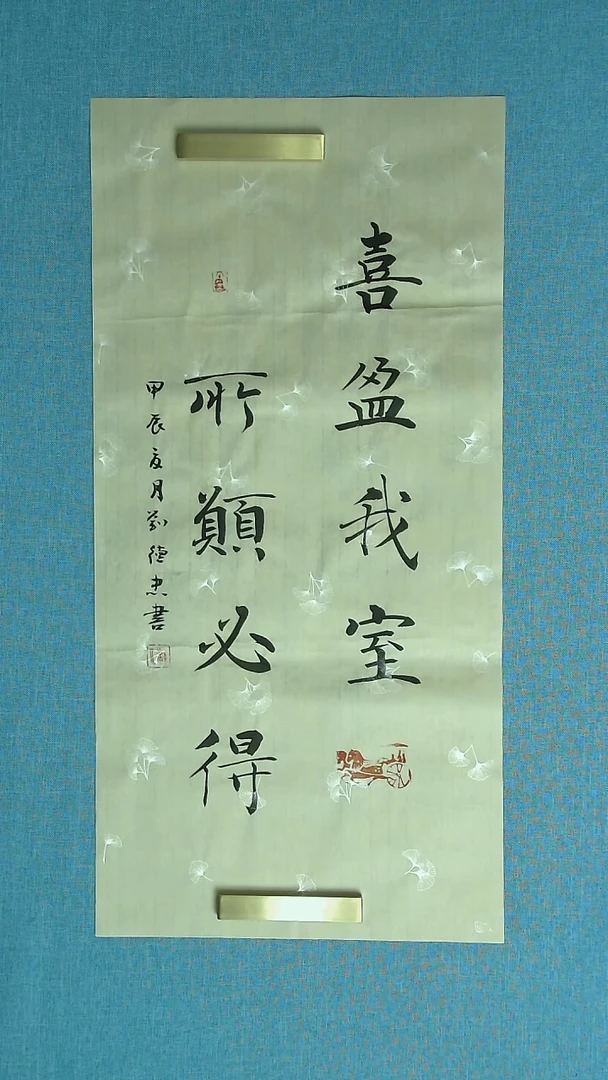 喜盈我室
所願必得
甲辰夏月劉德忠書